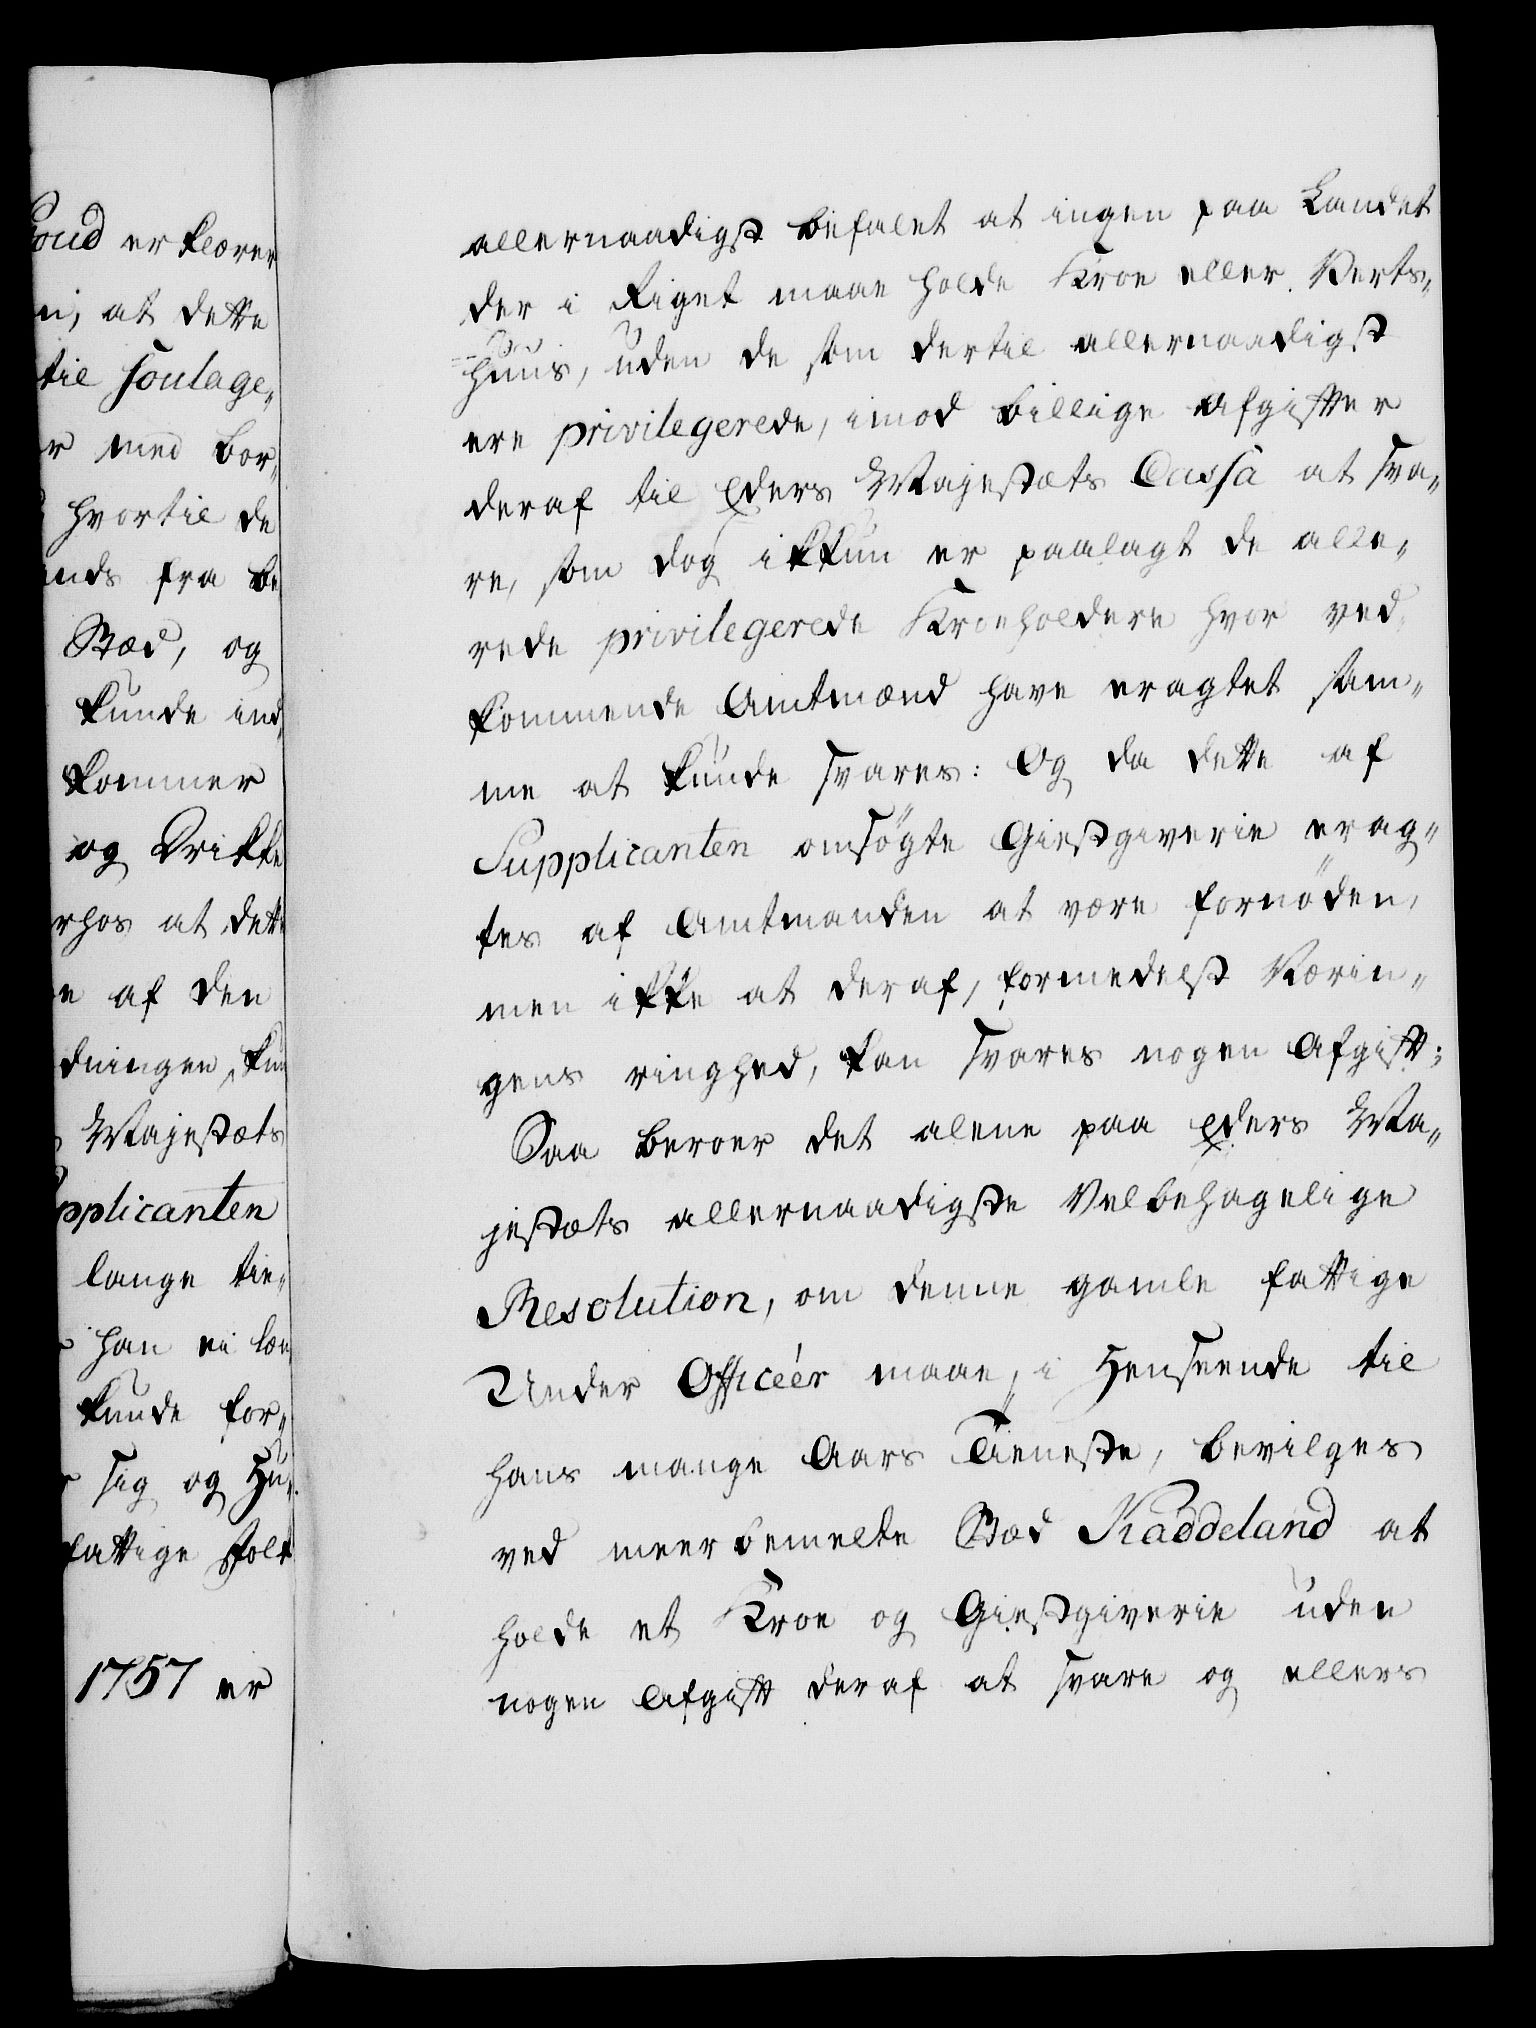 oud erklærer
n, at dette
til soulage„
r med bor„
hvortil de
ands fra be
Stæd, og
kunde ind
kommer
og Drikke
rhos at dette
e af den
dningen, kun
Majestæts
pplicanten
lange tie„
han ei læn
kunde for„
sig og Hu„
fattige Folk
1757 er
allernaadigst befalet at ingen paa Landet
der i Riget maae holde Kroe eller Verts„
huus, uden de som dertil allernaadigst
ere privilegerede, imod billige Afgifter
deraf til Eders Majestæts Cassa at sva„
re, som dog ikkun er paalagt de alle„
rede privilegerede Kroeholdere hvor ved„
kommende Amtmænd have eragtet sam„
me at kunde svares: Og da dette af
Supplicanten omsögte Giestgiverie erag„
tes af Amtmanden at være fornöden,
men ikke at deraf, formedelst Nærin„
gens ringhed, kan svares nogen Afgift;
Saa beroer det alene paa Eders Ma„
jestæts allernaadigste Velbehagelige
Resolution, om denne gamle fattige
Under Officeér maae, i Henseende til
hans mange Aars Tieneste, bevilges
ved meerbemelte Stæd Kaddeland at
holde et Kroe og Giestgiverie uden
nogen Afgift deraf at svare og ellers